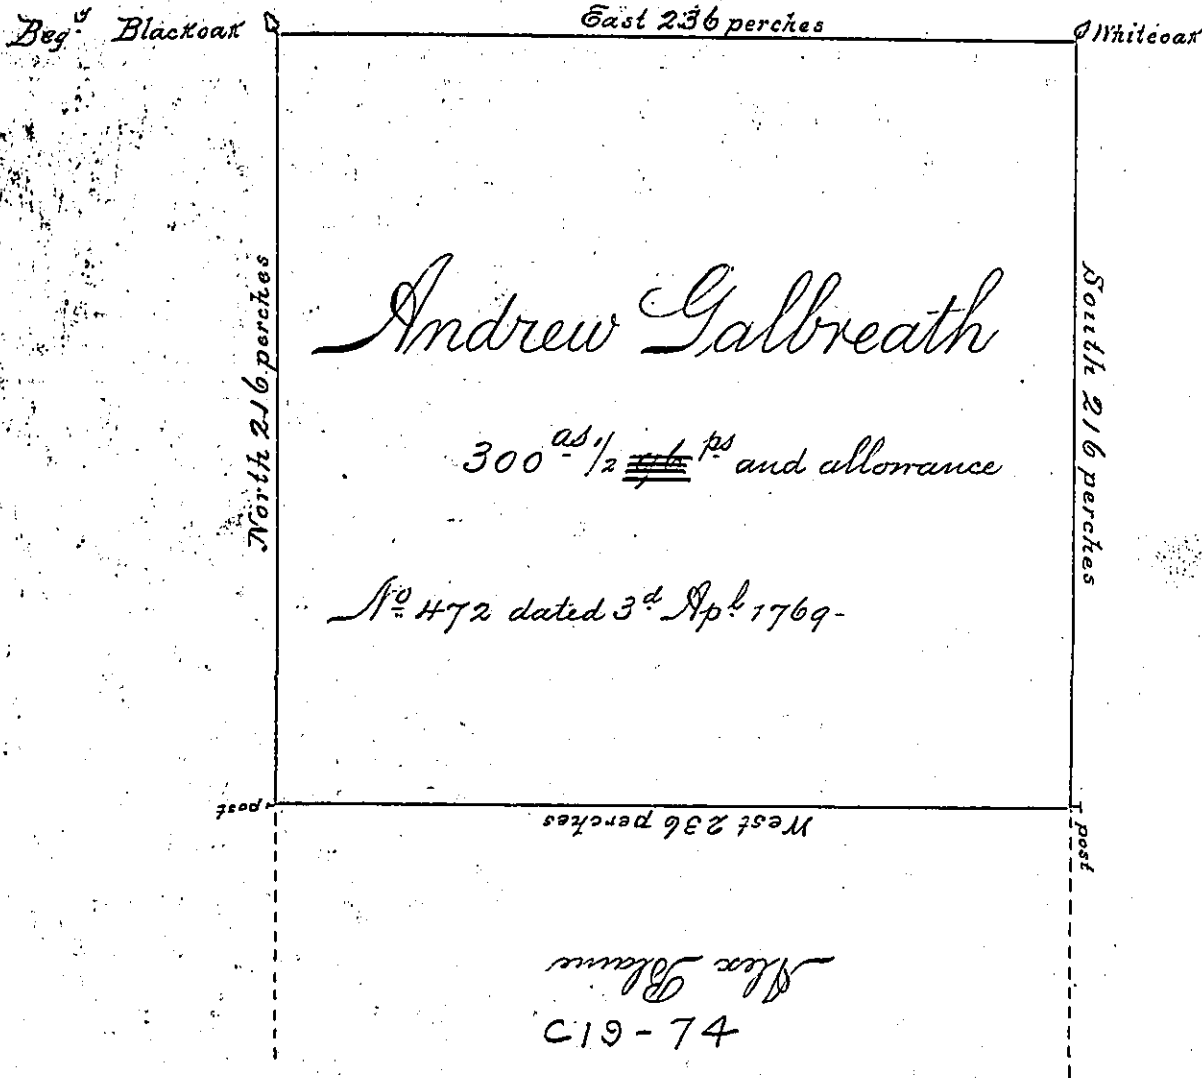 Begg Blackoak
East 236 perches
Whiteoak
North 216 perches
South 216 perches
Andrew Galbreath
300 as 1/2 ps and allowance
No 472 dated 3d Apl 1769-
post
West 236 perches
post
Alex Blaine
C19-74